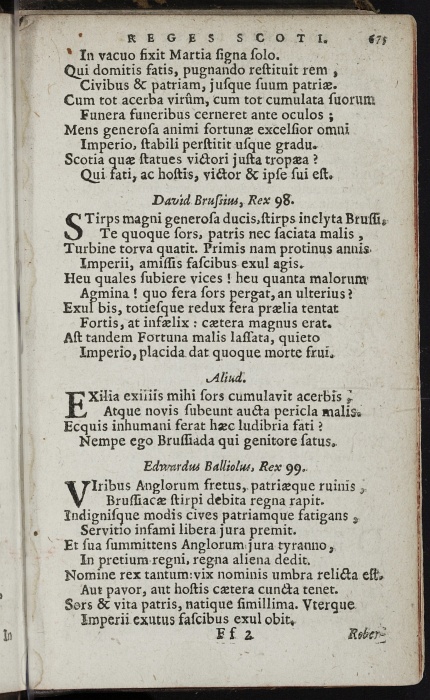 REGES SCOTI. 675
In vacuo fixit Martia signa solo.
Qui domitis fatis, pugnando restituit rem,
Civibus & patriam, jusque suum patriæ.
Cum tot acerba virûm, cum tot cumulata suorum
Funera funeribus cerneret ante oculos;
Mens generosa animi fortunæ excelsior omni
Imperio, stabili perstitit usque gradu.
Scotia quæ statues victori justa tropæa?
Qui fati, ac hostis, victor & ipse sui est.
David Brussius, Rex 98.
STirps magni generosa ducis, stirps inclyta Brussi,
Te quoque sors, patris nec saciata malis,
Turbine torva quatit. Primis nam protinus annis
Imperii, amissis fascibus exul agis.
Heu quales subiere vices! heu quanta malorum
Agmina! quo fera sors pergat, an ulterius?
Exul bis, totiesque redux fera prælia tentat
Fortis, at infælix: cætera magnus erat.
Ast tandem Fortuna malis lassata, quieto
Imperio, placida dat quoque morte frui.
Aliud.
EXilia exiliis mihi sors cumulavit acerbis;
Atque novis subeunt aucta pericla malis.
Ecquis inhumani ferat hæc ludibria fati?
Nempe ego Brussiada qui genitore satus.
Edwardus Balliolus, Rex 99.
VIribus Anglorum fretus, patriæque ruinis,
Brussiacæ stirpi debita regna rapit.
Indignisque modis cives patriamque fatigans,
Servitio infami libera jura premit.
Et sua summittens Anglorum jura tyranno,
In pretium regni, regna aliena dedit.
Nomine rex tantum: vix nominis umbra relicta est.
Aut pavor, aut hostis cætera cuncta tenet.
Sors & vita patris, natique simillima. Vterque
Imperii exutus fascibus exul obit.
Ff 2 Rober-
In